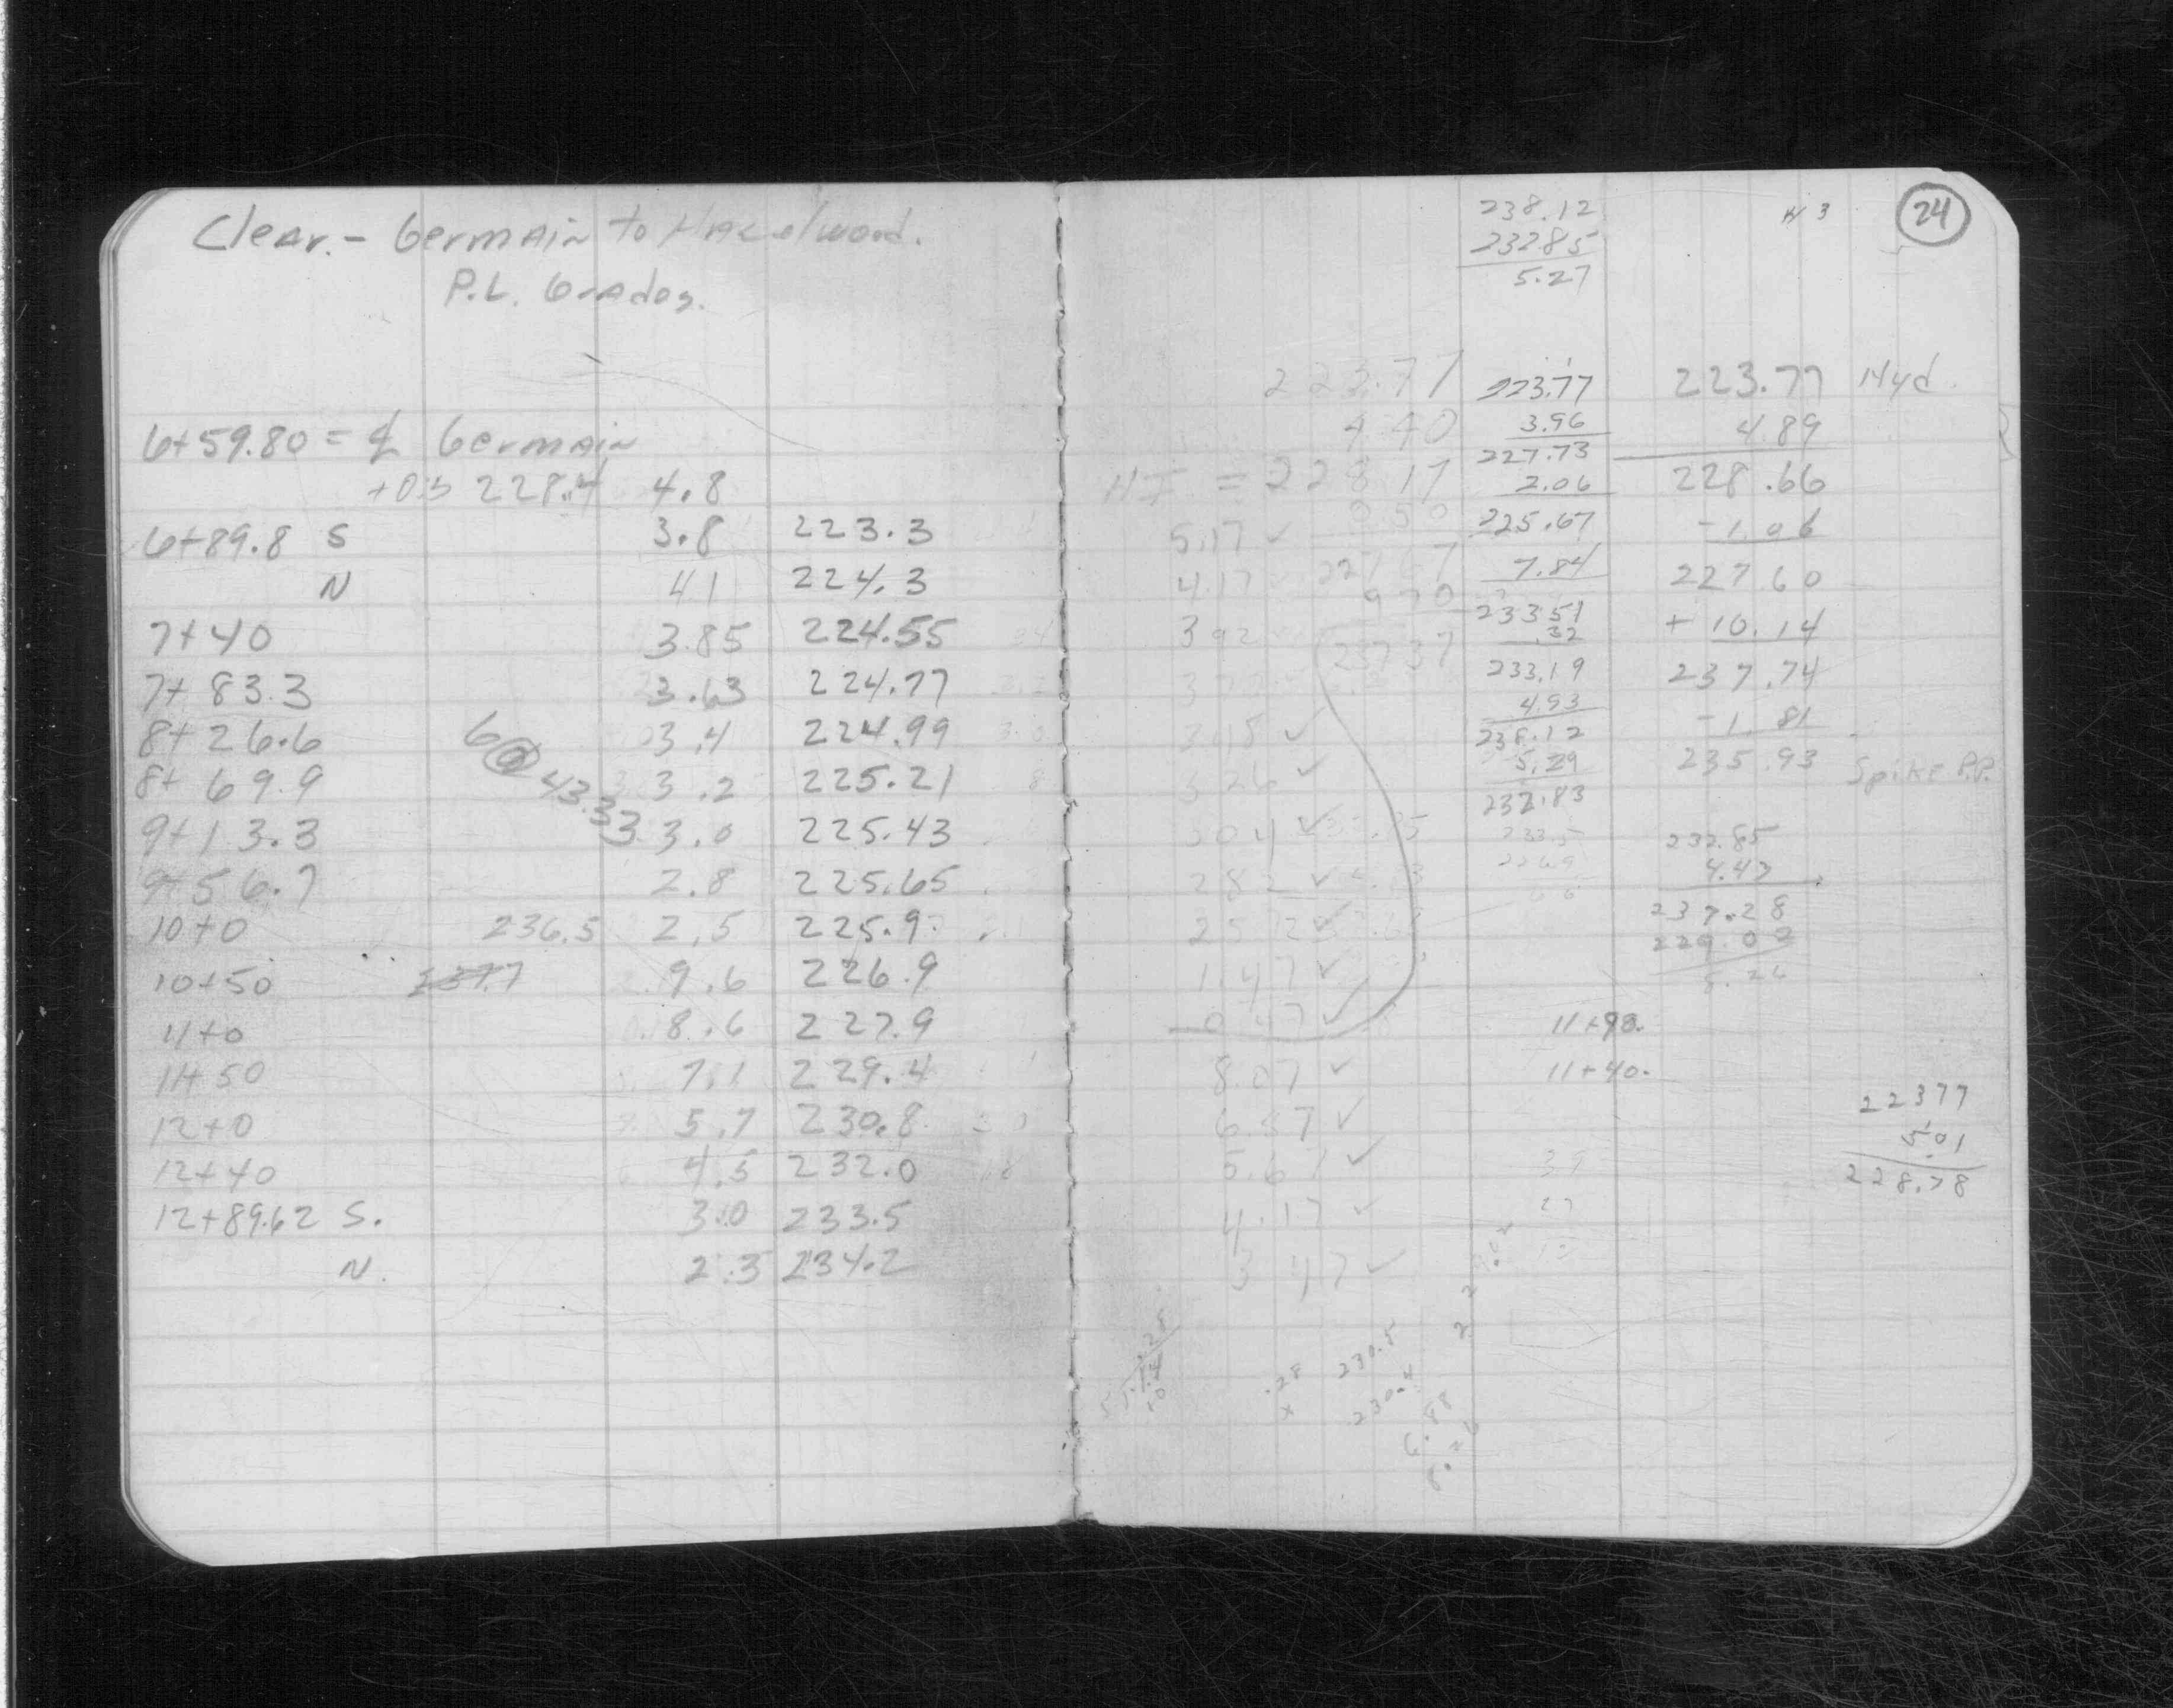 Clear. - Germain to Hazelwood.
P.L. Grades.
6+59.80 = ℄ Germain
228.4 4.8
6+89.8 S 3.8 223.3
N 4.1 224.3
7+40 3.85 224.55
7+83.3 3.63 224.77
8+26.6 3.4 224.99
6@43.33
8+69.9 3.2 225.21
9+13.3 3.0 225.43
9+56.7 2.8 225.65
10+0 236.5 2.5 225.9
10+50 9.6 226.9
11+0 8.6 227.9
11+50 7.1 229.4
12+0 5.7 230.8
12+40 4.5 232.0
12+89.62 S. 3.0 233.5
N. 2.3 234.2
24
N 3
238.12
232.85
5.27
223.77
4.40
HI = 228.17
0.50
227.67
9.70
237.37
5.17 ✓
4.17
3.92
3.18 ✓
3.26 ✓
3.04 ✓
2.82 ✓
1.47 ✓
0.47 ✓
8.07 ✓
6.57 ✓
5.67 ✓
4.17 ✓
3.47 ✓
223.77
3.96
227.73
2.06
225.67
7.84
233.51
.32
233.19
4.93
238.12
5.29
232.83
233.5
226.9
6.6
11+90.
11+40.
39
27
12
223.77 Hyd.
4.89
228.66
-1.06
227.60
+ 10.14
237.74
-1.81
235.93 Spike P.P.
232.85
4.43
237.28
229.02
223.77
5.01
228.78
.28
230.5
230.4
6.88